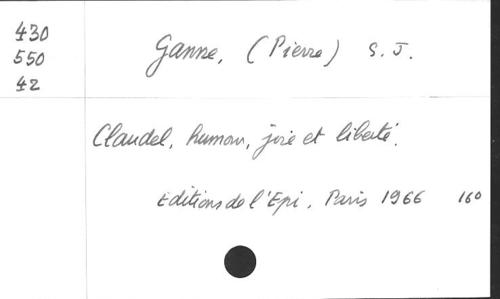 430
550
42
Ganne, (Pierre) S. J.
Claudel, humour, joie et liberté.
Editions de l'Epi. Paris 1966 160